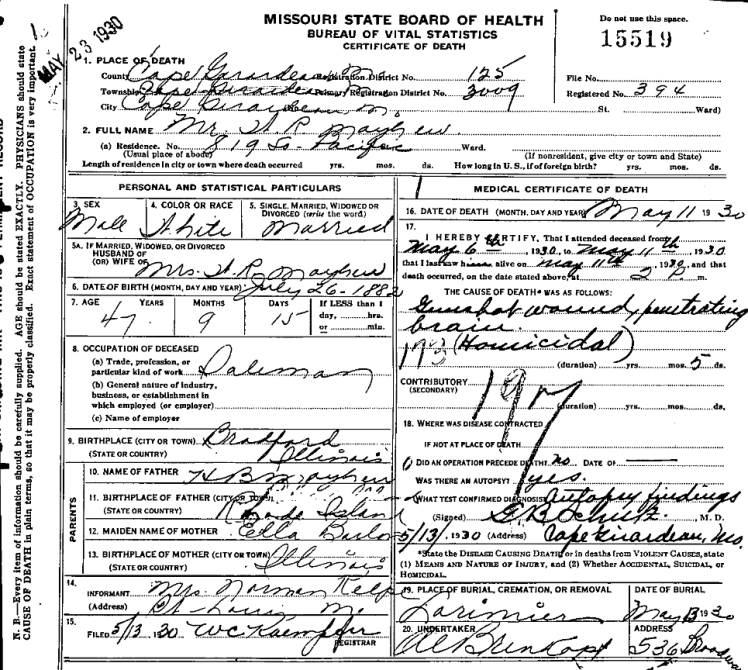 MAY 23 1930
MISSOURI STATE BOARD OF HEALTH
BUREAU OF VITAL STATISTICS
CERTIFICATE OF DEATH
Do not use this space.
15519
1. PLACE OF DEATH
County Cape Girardeau Registration District No. 125 File No.
Township Cape Girardeau Primary Registration District No. 3009 Registered No. 394
City Cape Girardeau Mo. St. Ward)
2. FULL NAME Mr. H. P. Mayhew.
(a) Residence. No. 819 So. Pacific Ward.
(Usual place of abode) (If nonresident, give city or town and State)
Length of residence in city or town where death occurred yrs. mos. ds. How long in U. S., if of foreign birth? yrs. mos. ds.
PERSONAL AND STATISTICAL PARTICULARS
3. SEX 4. COLOR OR RACE 5. SINGLE, MARRIED, WIDOWED OR
DIVORCED (write the word)
Male White Married
5A. IF MARRIED, WIDOWED, OR DIVORCED
HUSBAND OF
(OR) WIFE OF Mrs. H. P. Mayhew
6. DATE OF BIRTH (MONTH, DAY AND YEAR) July 26-1882
7. AGE YEARS MONTHS DAYS If LESS than 1
day, hrs.
or min.
47 9 15
8. OCCUPATION OF DECEASED
(a) Trade, profession, or
particular kind of work Salesman
(b) General nature of industry,
business, or establishment in
which employed (or employer)
(c) Name of employer
9. BIRTHPLACE (CITY OR TOWN) Bradford
(STATE OR COUNTRY) Illinois
PARENTS
10. NAME OF FATHER H B Mayhew
11. BIRTHPLACE OF FATHER (CITY OR TOWN)
(STATE OR COUNTRY) Rhode Island
12. MAIDEN NAME OF MOTHER Ella Barlo
13. BIRTHPLACE OF MOTHER (CITY OR TOWN)
(STATE OR COUNTRY) Illinois
14.
INFORMANT Mrs Norman Kelp
(Address) St. Louis Mo.
15.
FILED 5/13 30 W C Kaempfer
REGISTRAR
MEDICAL CERTIFICATE OF DEATH
16. DATE OF DEATH (MONTH, DAY AND YEAR) May 11 1930
17.
I HEREBY CERTIFY, That I attended deceased from
May 6 th, 1930, to May 11th, 1930
that I last saw h alive on May 11th, 1930, and that
death occurred, on the date stated above, at 2 P. m.
THE CAUSE OF DEATH* WAS AS FOLLOWS:
Gunshot wound, penetrating
brain.
173 (Homicidal)
(duration) yrs. mos. 5 ds.
CONTRIBUTORY
(SECONDARY)
(duration) yrs. mos. ds.
18. WHERE WAS DISEASE CONTRACTED
IF NOT AT PLACE OF DEATH
DID AN OPERATION PRECEDE DEATH? no DATE OF
WAS THERE AN AUTOPSY? yes.
WHAT TEST CONFIRMED DIAGNOSIS? Autopsy findings
(Signed) , M. D.
5/13, 1930 (Address) Cape Girardeau, Mo.
*State the DISEASE CAUSING DEATH, or in deaths from VIOLENT CAUSES, state
(1) MEANS AND NATURE OF INJURY, and (2) Whether ACCIDENTAL, SUICIDAL, or
HOMICIDAL.
19. PLACE OF BURIAL, CREMATION, OR REMOVAL DATE OF BURIAL
Lorimier May 13 1930
20. UNDERTAKER ADDRESS
536
N. B.—Every item of information should be carefully supplied. AGE should be stated EXACTLY. PHYSICIANS should state
CAUSE OF DEATH in plain terms, so that it may be properly classified. Exact statement of OCCUPATION is very important.